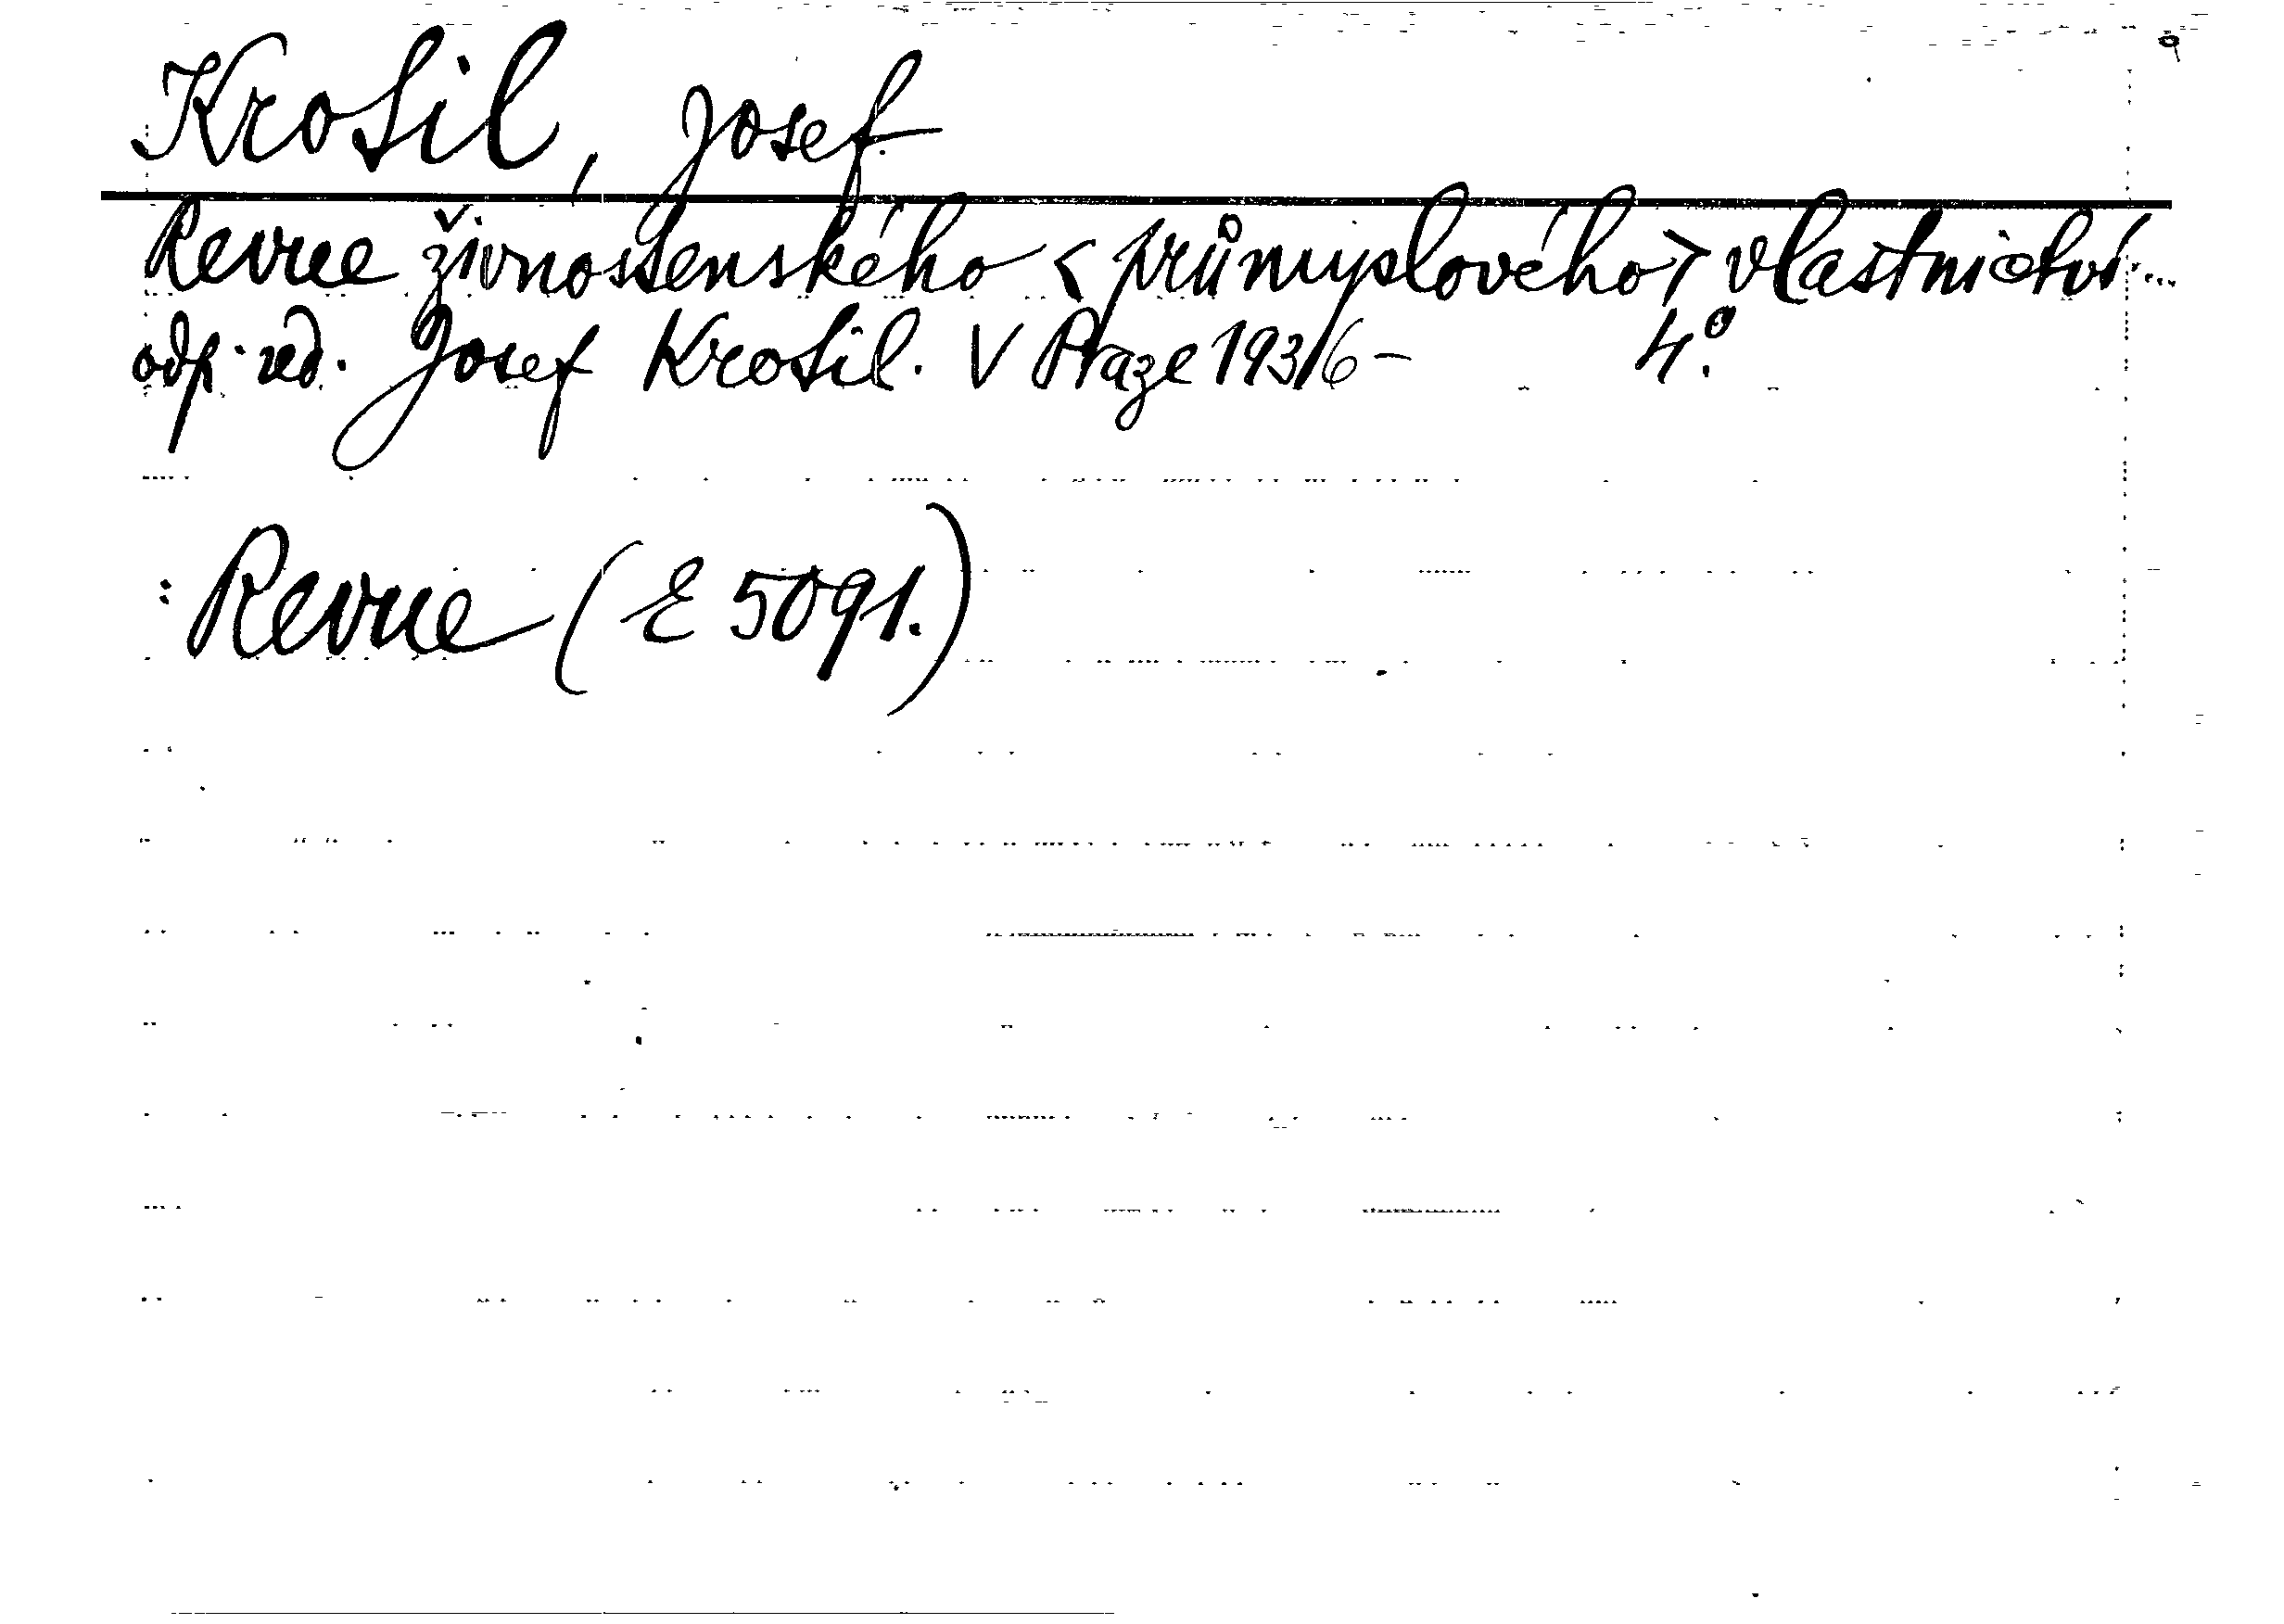 Krosil, Josef
Revue živnostenského < průmyslového > vlastnictví...
odp. red. Josef Krosil. V Praze 1936- 4°.
: Revue (E 5091.)